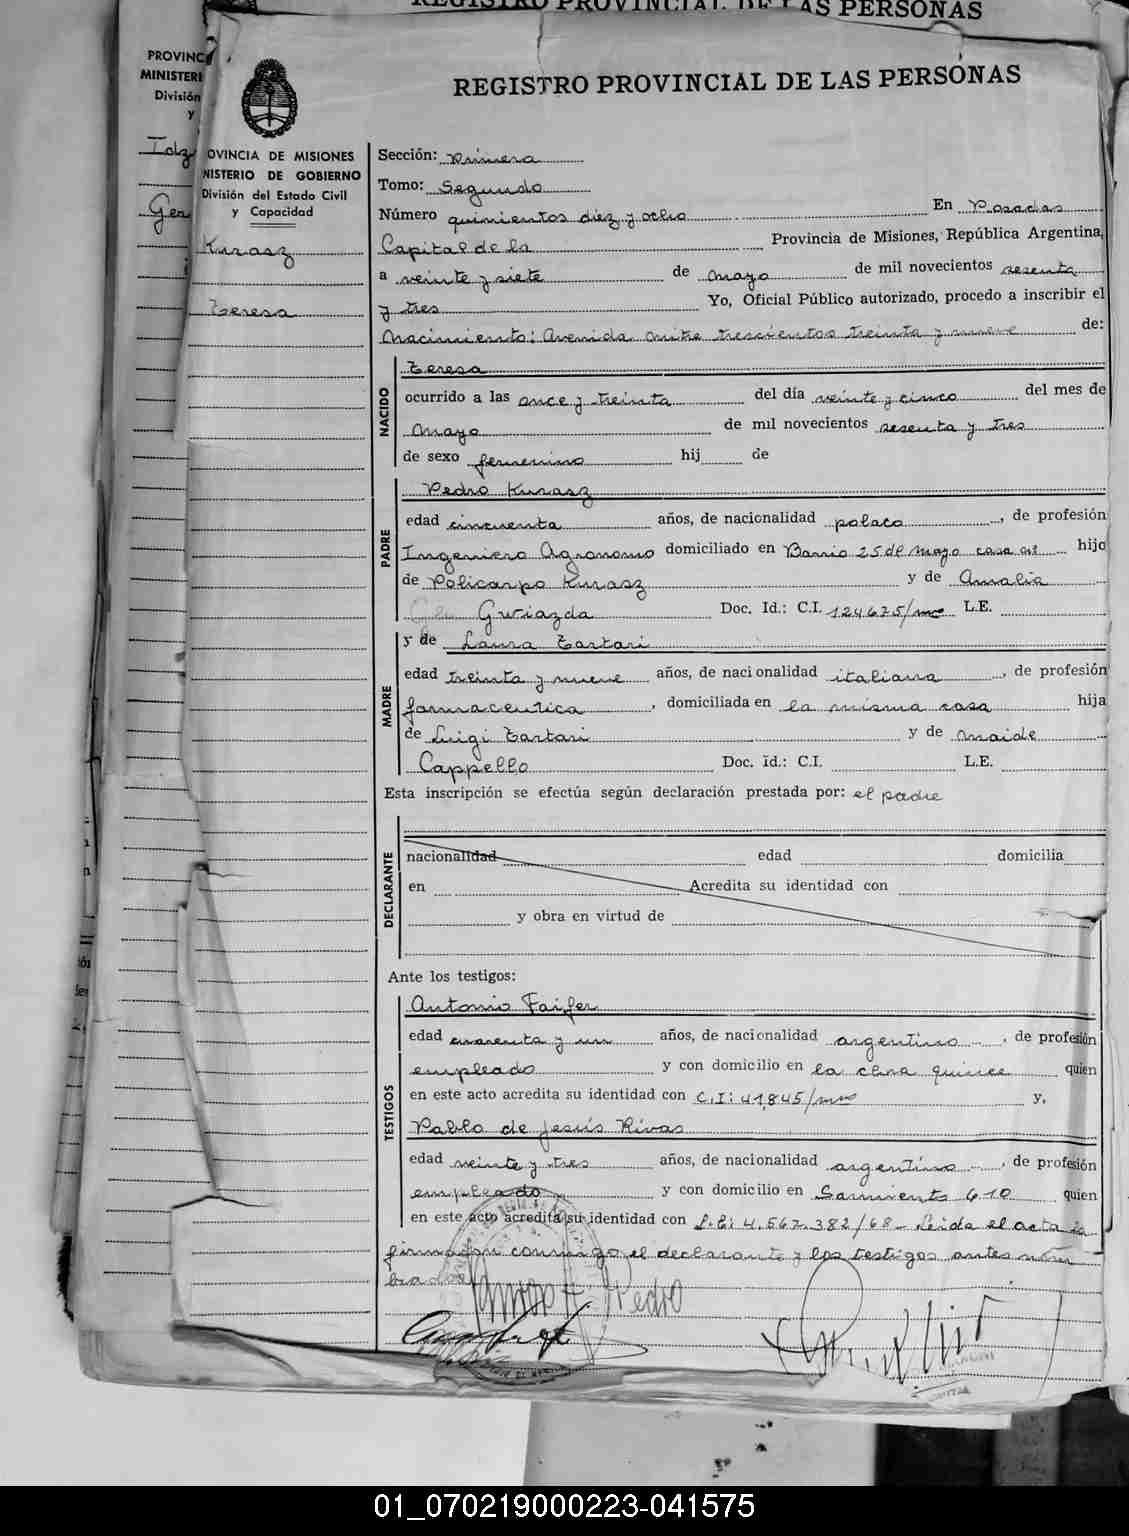 REGISTRO PROVINCIAL DE LAS PERSONAS
PROVINC
MINISTERI
División
y
REGISTRO PROVINCIAL DE LAS PERSONAS
OVINCIA DE MISIONES
NISTERIO DE GOBIERNO
División del Estado Civil
y Capacidad
Kurasz
Teresa
Sección: Primera
Tomo: Segundo
Número quinientos diez y ocho En Posadas
Capital de la Provincia de Misiones, República Argentina,
a veinte y siete de mayo de mil novecientos sesenta
y tres Yo, Oficial Público autorizado, procedo a inscribir el
Nacimiento: Avenida Mitre trescientos treinta y nueve de:
NACIDO
Teresa
ocurrido a las once y treinta del día veinte y cinco del mes de
Mayo de mil novecientos sesenta y tres
de sexo femenino hij de
PADRE
Pedro Kurasz
edad cincuenta años, de nacionalidad polaco, de profesión
Ingeniero Agronomo domiciliado en Barrio 25 de Mayo casa hijo
de Policarpo Kurasz y de Amalia
Gwiazda Doc. Id.: C.I. 124675/ L.E.
y de Laura Tartari
MADRE
edad treinta y nueve años, de nacionalidad italiana, de profesión
farmaceutica, domiciliada en la misma casa hija
de Luigi Tartari y de Maide
Cappello Doc. Id.: C.I. L.E.
Esta inscripción se efectúa según declaración prestada por: el padre
DECLARANTE
nacionalidad edad domicilia
en Acredita su identidad con
y obra en virtud de
Ante los testigos:
TESTIGOS
Antonio Faifer
edad cuarenta y un años, de nacionalidad argentino, de profesión
empleado y con domicilio en la cha quince quien
en este acto acredita su identidad con C.I: 41.845/ y,
Pablo de Jesús Rivas
edad veinte y tres años, de nacionalidad argentino, de profesión
empleado y con domicilio en Sarmiento 610 quien
en este acto acredita su identidad con L.E: 4.567.382/68 - Leida el acta la
firmaron conmigo, el declarante y los testigos antes nom
brados
Pedro
01_070219000223-041575